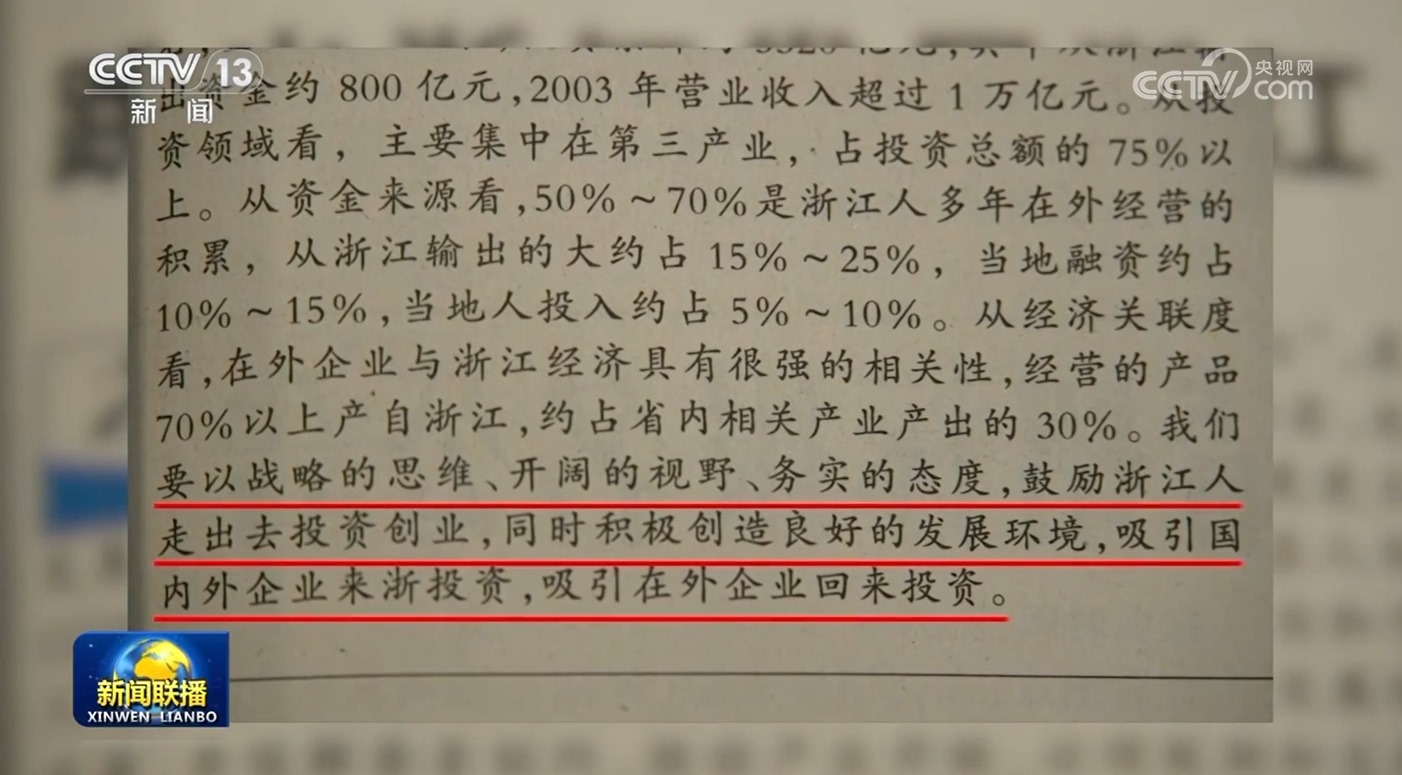 CCTV 13
新闻
CCTV 央视网
com
出资金约 800 亿元,2003 年营业收入超过 1 万亿元。从投
资领域看，主要集中在第三产业，占投资总额的 75%以
上。从资金来源看,50%~70%是浙江人多年在外经营的
积累，从浙江输出的大约占 15%~25%，当地融资约占
10%~15%,当地人投入约占 5%~10%。从经济关联度
看,在外企业与浙江经济具有很强的相关性,经营的产品
70%以上产自浙江,约占省内相关产业产出的 30%。我们
要以战略的思维、开阔的视野、务实的态度,鼓励浙江人
走出去投资创业,同时积极创造良好的发展环境,吸引国
内外企业来浙投资,吸引在外企业回来投资。
新闻联播
XINWEN LIANBO